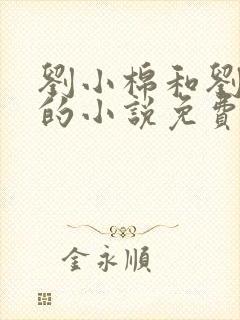 劉小棉和劉
的小説免費
金永順